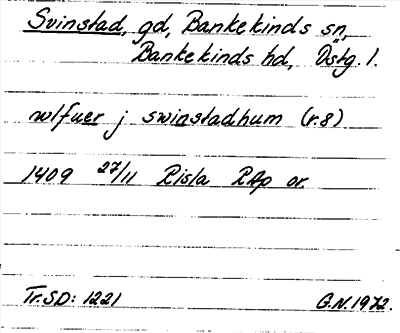 Svinstad, gd, Bankekinds sn,
Bankekinds hd, Östg. l.
wlfuer j swinstadhum (r.8)
1409 27/11 Risla RAp or.
Tr. SD: 1221 G.N. 1972.